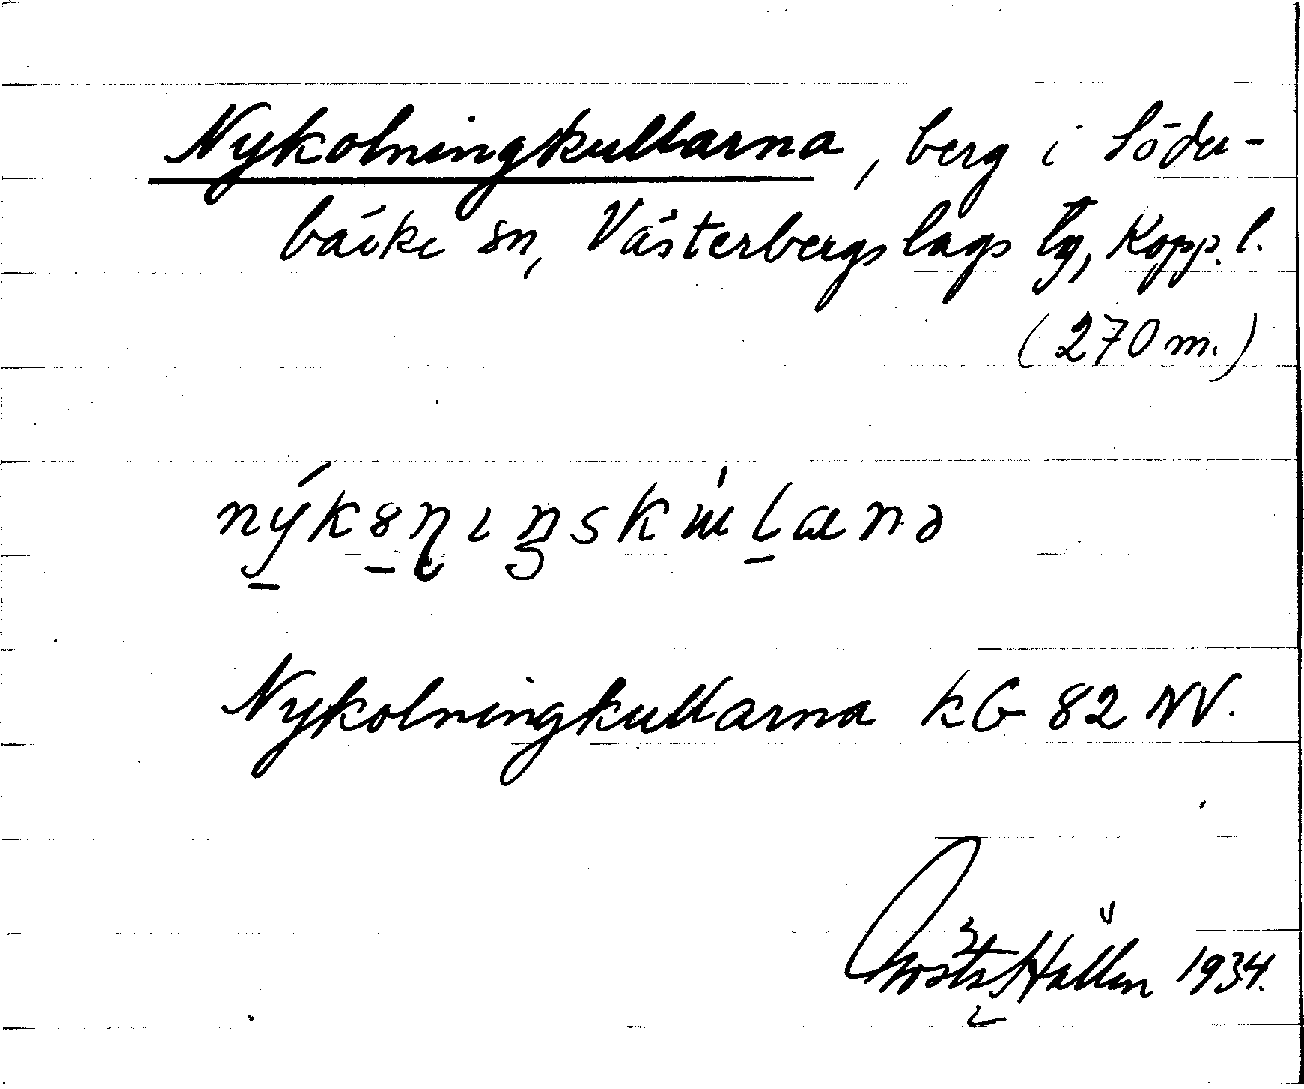 Nykolningkullarna, berg i Söder-
bärke sn, Västerbergslags tg, Kopp. l.
(270 m.)
Nykolningkullarna kG 82 NV.
Gösta Hallén 1934.